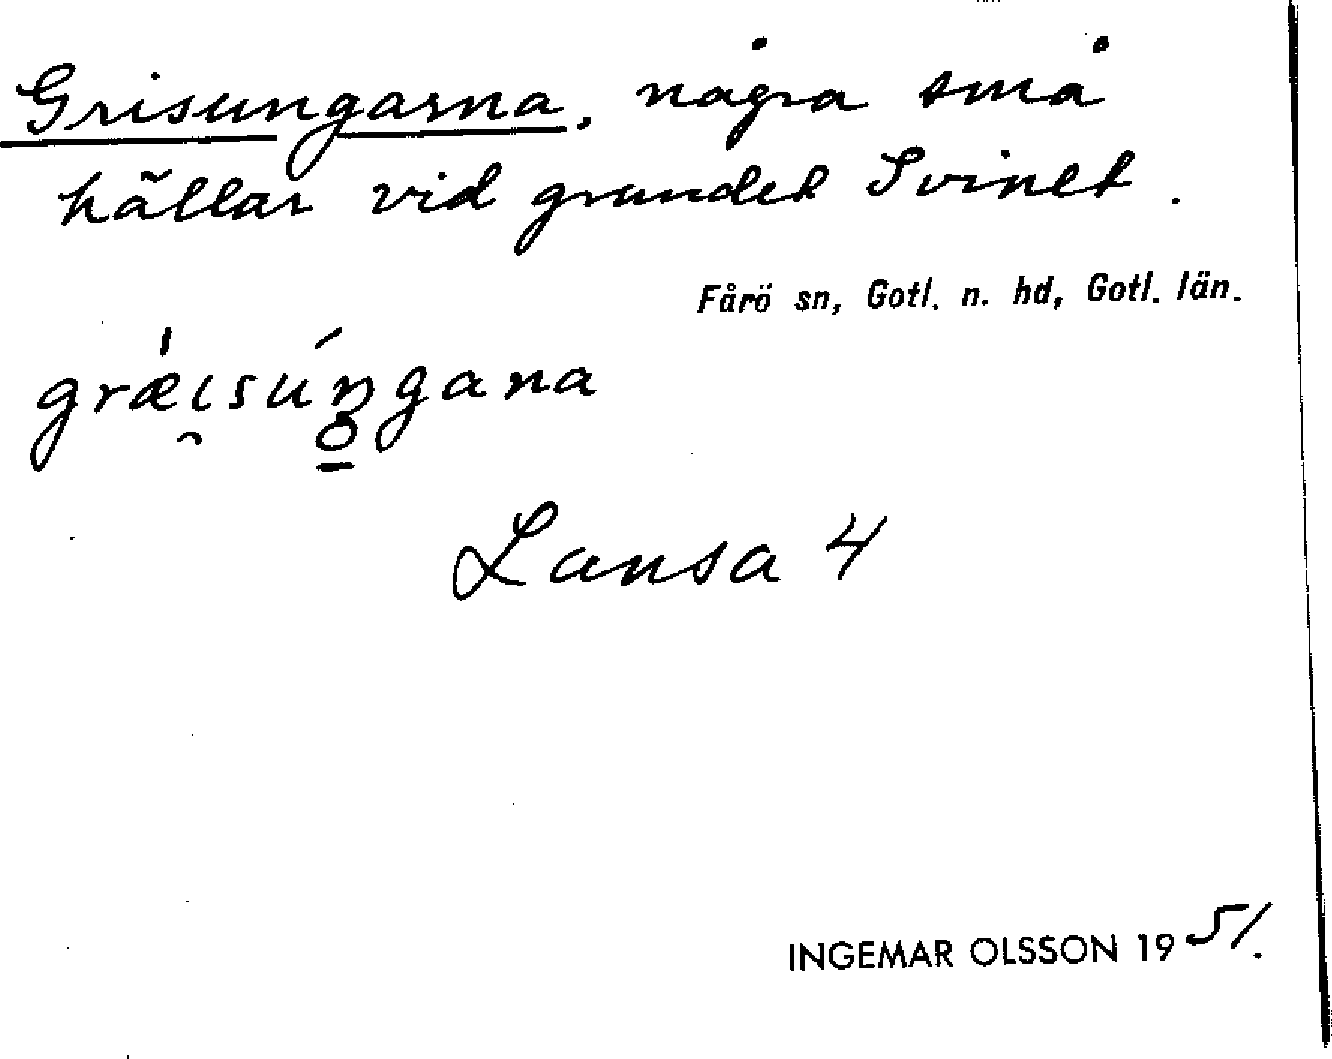 Grisungarna, några små
hällar vid grundet Svinet.
Fårö sn, Gotl. n. hd, Gotl. län.
græ̀i̯súŋgana
Lansa 4
INGEMAR OLSSON 1951.